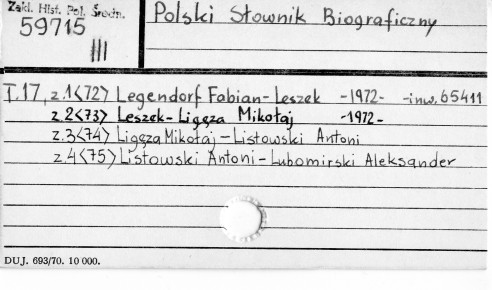 Zakł. Hist. Pol. Średn.
59715
III
Polski Słownik Biograficzny
T.17, z.1<72> Legendorf Fabian-Leszek -1972- -inw.65411
z.2<73> Leszek-Ligęza Mikołaj -1972-
z.3<74> Ligęza Mikołaj-Listowski Antoni
z.4<75> Listowski Antoni-Lubomirski Aleksander
DUJ. 693/70. 10 000.